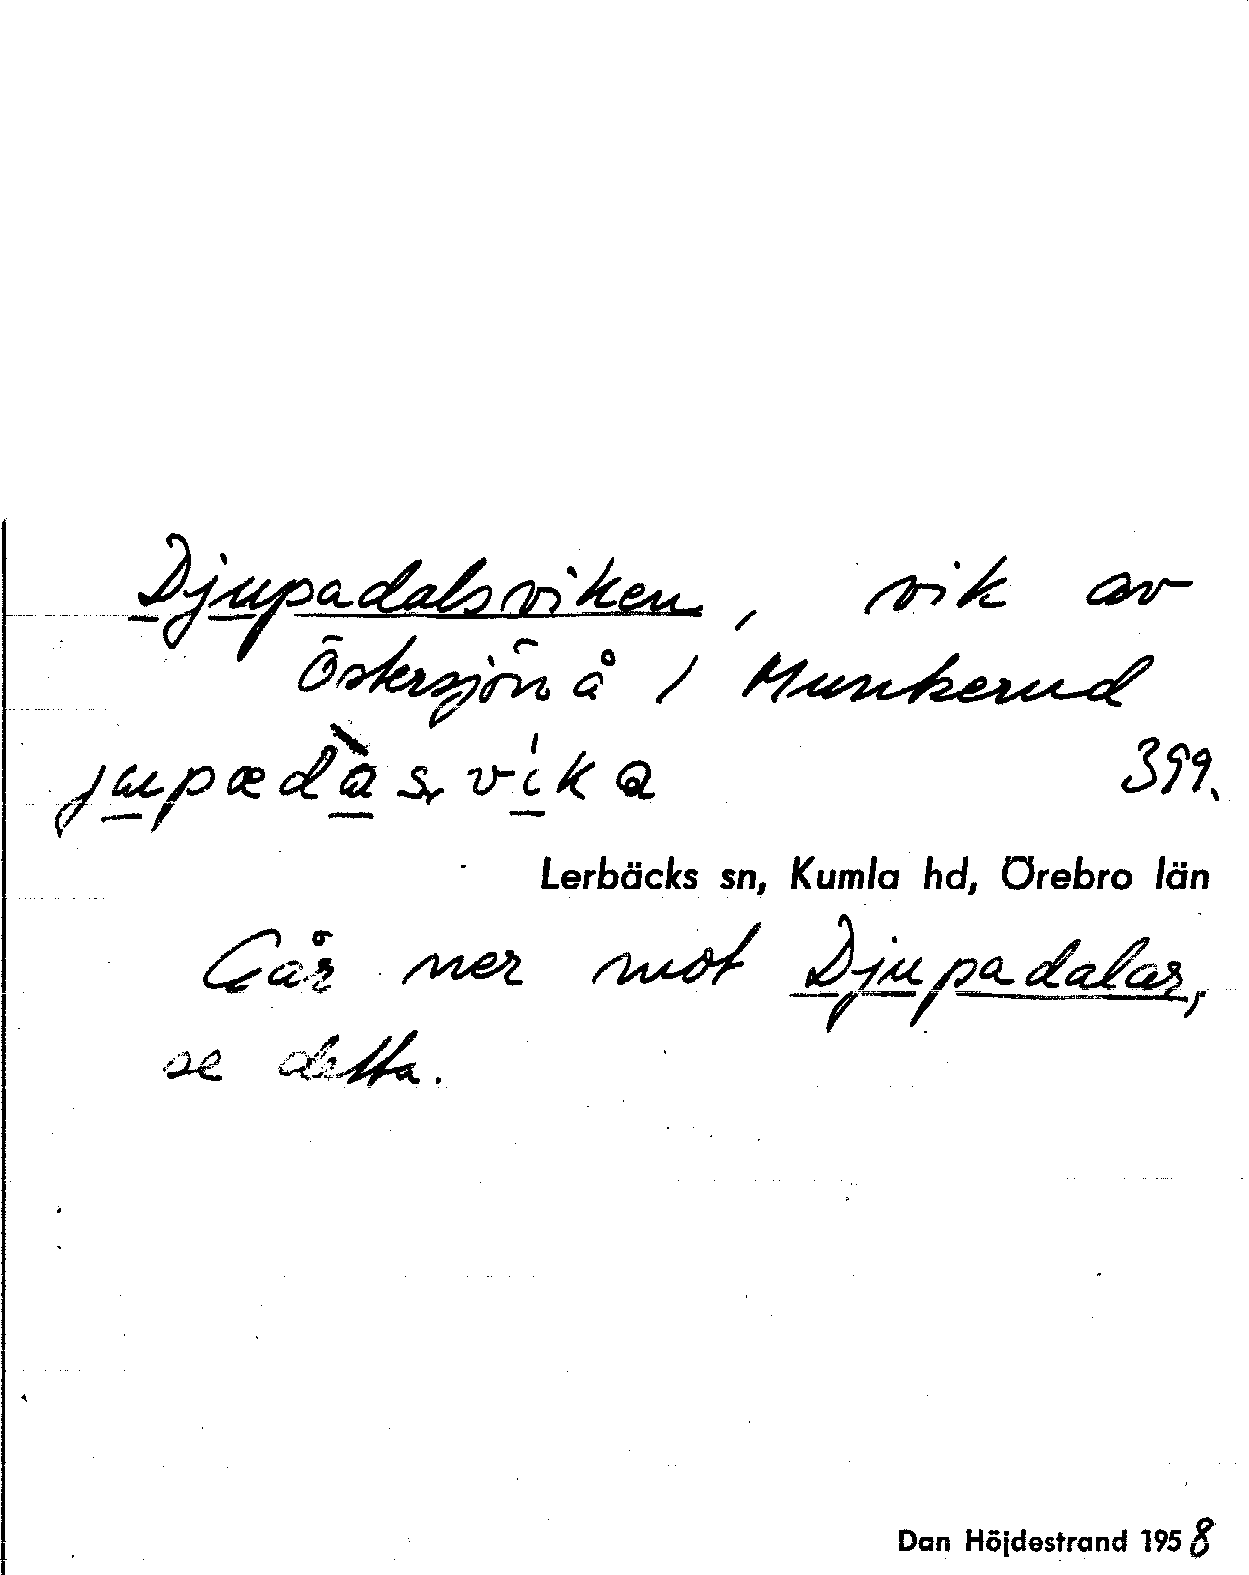 Djupadalsviken, vik av
Östersjön å / Munkerud
jupædàsvíka 399.
Lerbäcks sn, Kumla hd, Örebro län
Går ner mot Djupadalar,
se detta.
Dan Höjdestrand 1958